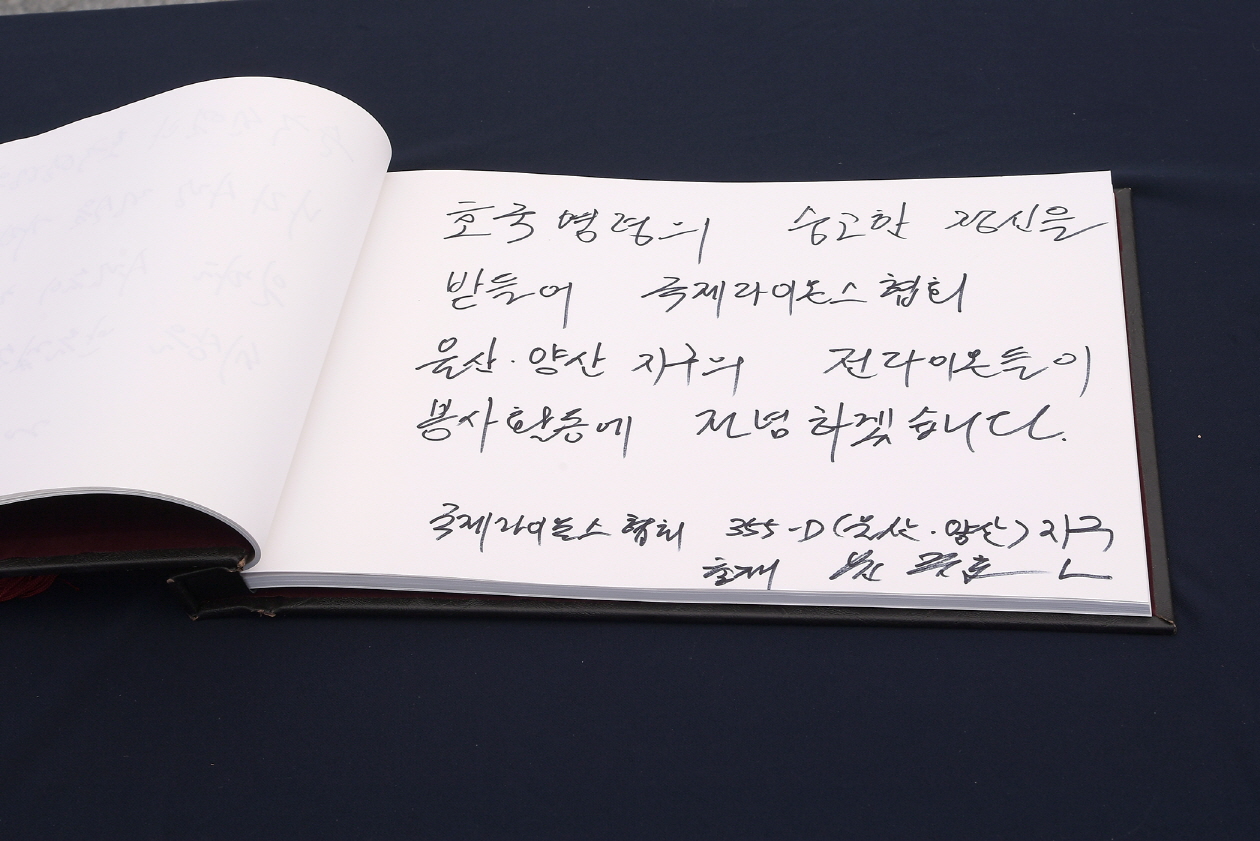 호국영령의 숭고한 정신을
받들어 국제라이온스협회
울산·양산 지구의 전라이온들이
봉사활동에 전념하겠습니다.
국제라이온스협회 355-D(울산·양산)지구
총재